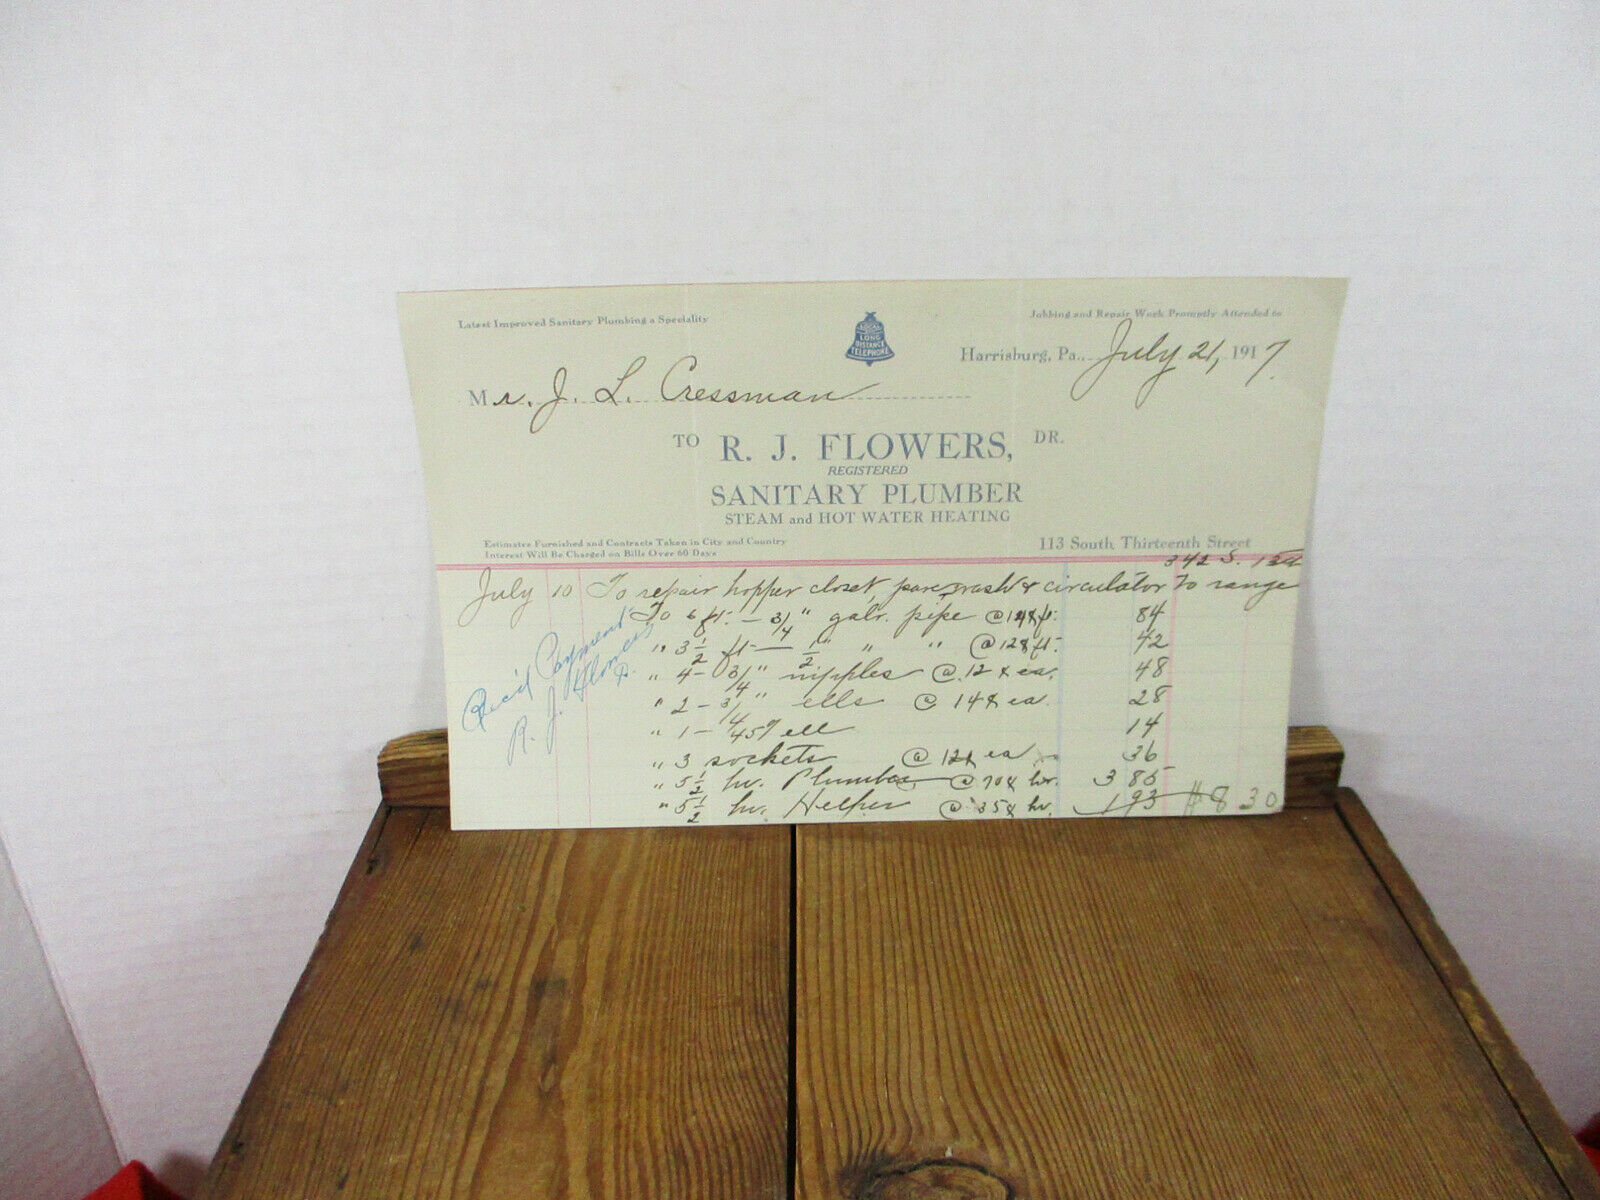 Latest Improved Sanitary Plumbing a Speciality
Jobbing and Repair Work Promptly Attended to
LOCAL
LONG
DISTANCE
TELEPHONE
Harrisburg, Pa., July 21, 1917.
Mr. J. L. Cressman
TO R. J. FLOWERS, DR.
REGISTERED
SANITARY PLUMBER
STEAM and HOT WATER HEATING
Estimates Furnished and Contracts Taken in City and Country
Interest Will Be Charged on Bills Over 60 Days
113 South Thirteenth Street
342 S. 13th
July 10 To repair hopper closet, pave wash & circulator to range
To 6 ft. - 3/4" galv. pipe @ 14¢ ft. 84
" 3 1/2 ft - 1/2 " " " @ 12¢ ft. 42
" 4 - 3/4" nipples @ 12¢ ea. 48
" 2 - 3/4" ells @ 14¢ ea. 28
" 1 - 45° ell 14
" 3 sockets @ 12¢ ea 36
" 5 1/2 hr. Plumber @ 70¢ hr. 3 85
" 5 1/2 hr. Helper @ 35¢ hr. 1 93 $8 30
Rec'd Payment
R. J. Flowers